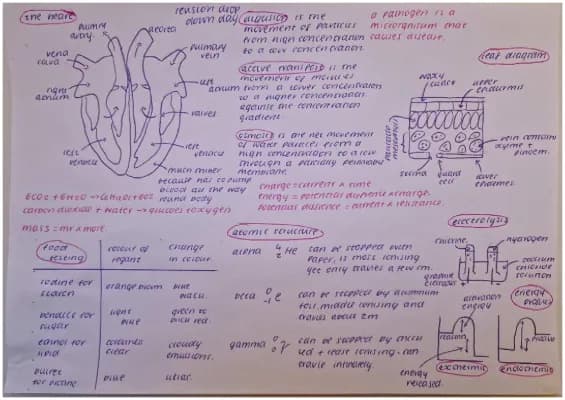 the heart
tension drop
down day
pulmry
artery.
aorta
vena
cava
pulmary
vein
right
atrium
left
atrium
valves
left
ventricle
much thicker
because has to pump
blood all the way
round body
diffusion is the
movement of particles
from high concentration
to a low concentration.
active transport is the
movement of
from a lower concentration
to a higher concentration
against the concentration
gradient.
osmosis is the net movement
of water particles from a
high concentration to a low
through a partially permeable
membrane.
a pathogen is a
microrganism that
causes disease.
leaf diagram
waxy
upper
palisade
mesophyll
stoma
guard
cell
lower
vein contains
xylem +
phloem.
6CO2 + 6H2O → C6H12O6 + 6O2
carbon dioxide + water → glucose + oxygen
mass = mr x mole
charge = current x time
energy = potential difference x charge.
potential difference = current x resistance.
food
testing
colour of
change
in colour.
iodine for
starch
orange brown
blue
black.
benedicts for
sugar
light
blue
green to
brick red.
ethanol for
lipid
clear
cloudy
biuret
for protein
blue
lilac.
atomic structure
alpha 4 2 He can be stopped with
paper, is most ionising
yet only travels a few cm.
beta 0 -1 e can be stopped by
foil, middle ionising and
travels about 2m
gamma 0 0 γ can be stopped by thick
lead + least ionising. can
electrolysis
chlorine.
hydrogen
graphite
electrodes
sodium
chloride
solution
energy
profiles
activation
energy
reaction
energy
released.
exothermic
endothermic